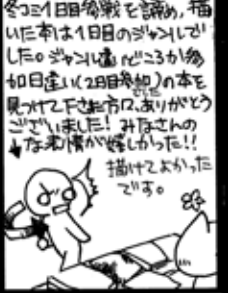 冬コミ1日目参戦を諦め、描
いた本は1日目のジャンルで
した。ジャンル違いどころか参
加日違い(2日目参加)の本を
見つけて下さった方々、ありがとう
ございました！みなさんの
↓な表情が嬉しかった!!
描けてよかった
です。